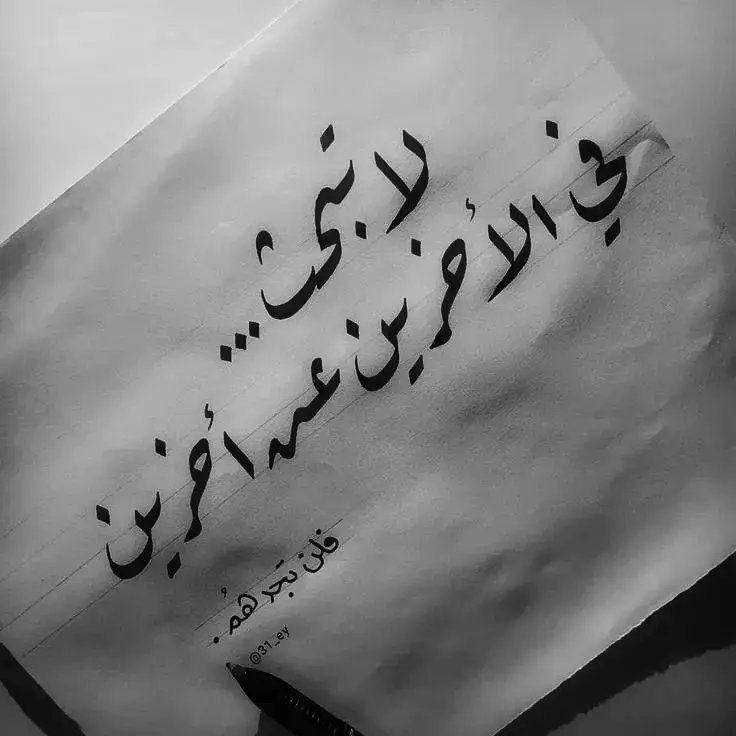 لا تبحث...
في الأخرين عن أخرين
فلن تجدهمُ.
@31_ey